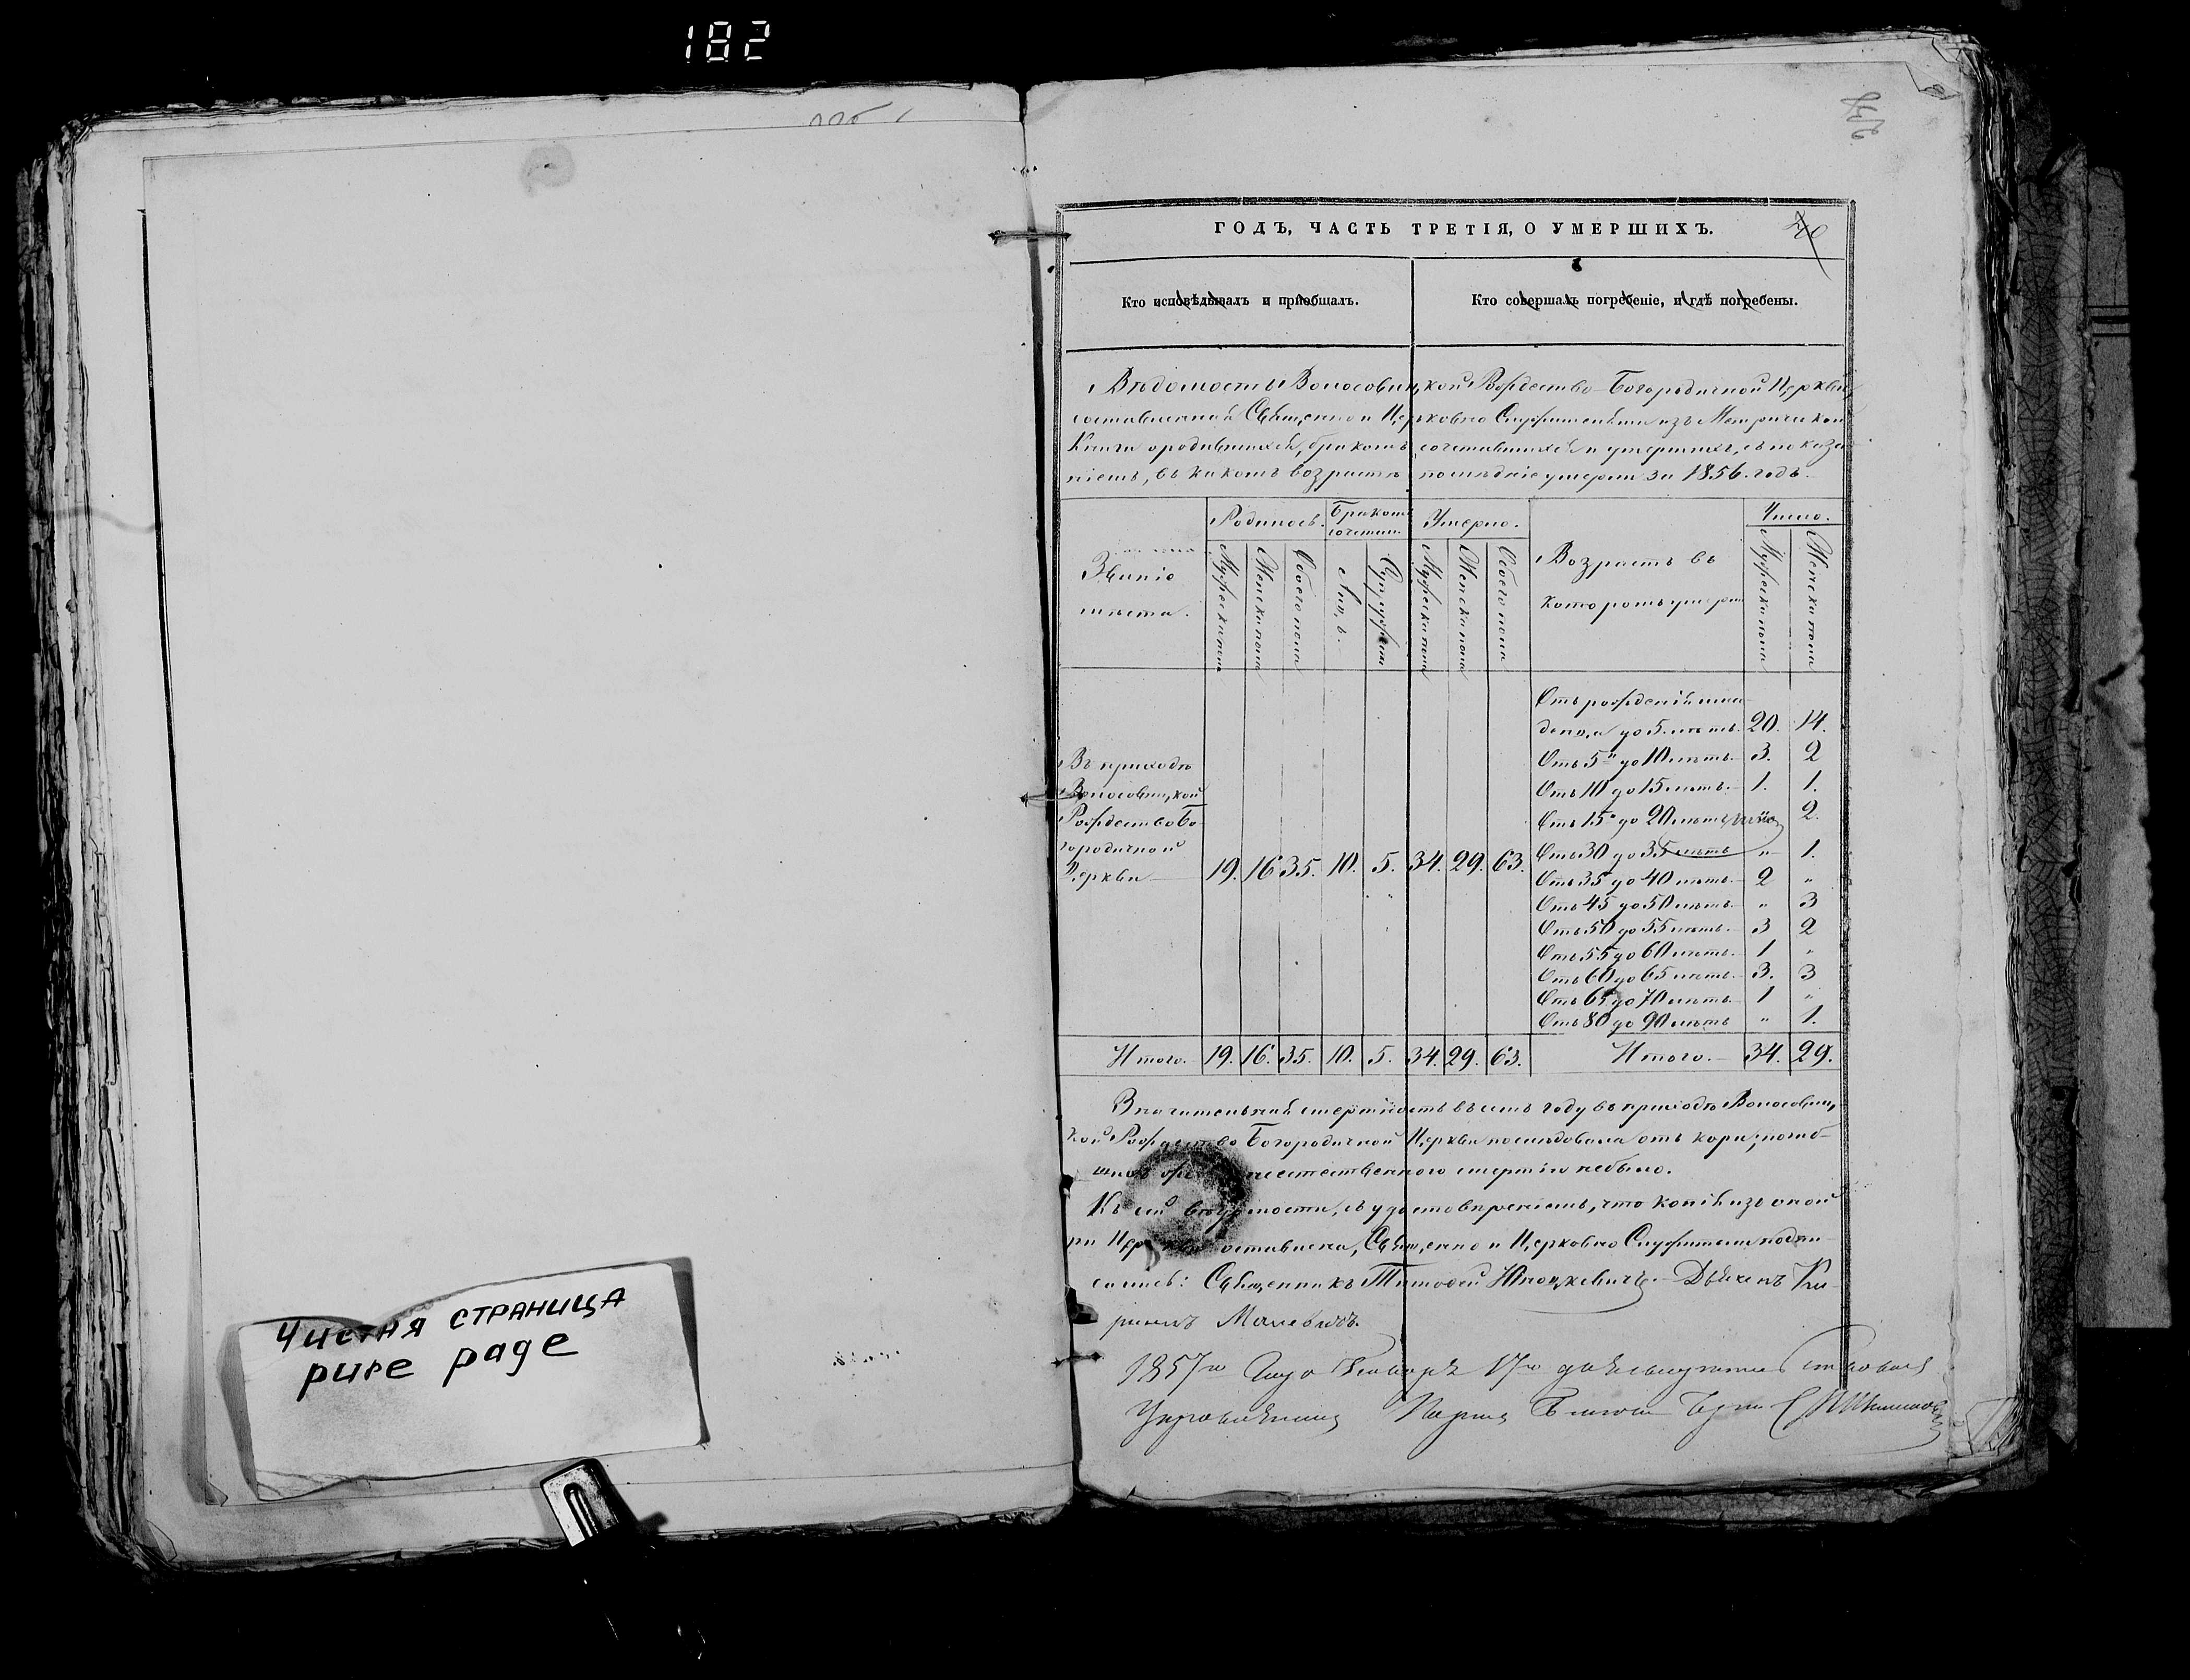 182
Чистая страница
pure page
ГОДЪ, ЧАСТЬ ТРЕТІЯ, О УМЕРШИХЪ.
Кто исповѣдывалъ и пріобщалъ.
Кто совершалъ погребеніе, и гдѣ погребены.
Вѣдомость Волосовицкой Рождество-Богородичной Церкви,
составленная Священно и Церковно Служителями изъ Метрической
Книги о родившихся, бракомъ сочетавшихся и умершихъ, съ показа
ніемъ, въ какомъ возрастѣ послѣдніе умерли за 1856. годъ.
Званіе
мѣста.
Родилось.
Мужеска пола
Женска пола
Обоего пола
Бракомъ
сочетал.
Лицъ.
Супружествъ
Умерло.
Мужеска пола
Женска пола
Обоего пола
Возрастъ въ
которомъ умерли
Число.
Мужеска пола
Женска пола
Въ приходѣ
Волосовицкой
Рождество Бо-
городичной
Церкви 19. 16 35. 10. 5. 34. 29. 63.
Отъ рожденія мла
денца до 5. лѣтъ. 20. 14.
Отъ 5 до 10 лѣтъ. 3. 2
Отъ 10 до 15 лѣтъ. 1. 1.
Отъ 15 до 20 лѣтъ 2.
Отъ 30 до 35 лѣтъ " 1.
Отъ 35 до 40 лѣтъ. 2 "
Отъ 45 до 50 лѣтъ. " 3
Отъ 50 до 55 лѣтъ. 3 2
Отъ 55 до 60 лѣтъ. 1 "
Отъ 60 до 65 лѣтъ. 3. 3
Отъ 65 до 70 лѣтъ 1 "
Отъ 80 до 90 лѣтъ " 1.
Итого. 19. 16. 35. 10. 5. 34. 29. 63. Итого. 34. 29.
Значительная смертность въ семъ году въ приходѣ Волосовиц,
кой Рождество Богородичной Церкви послѣдовала отъ кори; погиб-
шихъ смертію небыло.
Къ сей вѣдомости, съ удостовѣреніемъ, что копія изъ оной
при Церкви оставлена, Священно и Церковно Служители подпи-
сались: Священникъ Тимофей Юноцкевичъ. Дьячекъ Ки-
риллъ Малевичъ.
1857го Года Января 17го дня